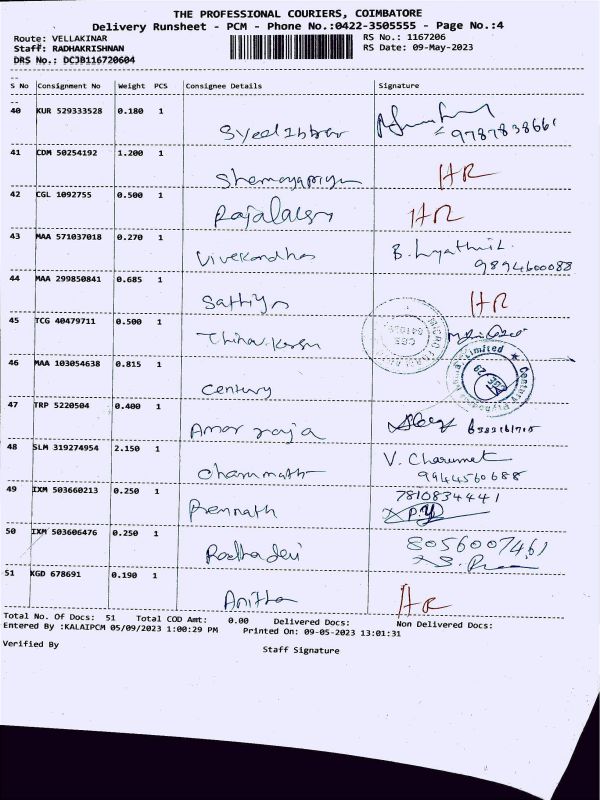 THE PROFESSIONAL COURIERS, COIMBATORE
Delivery Runsheet - PCM - Phone No.:0422-3505555 - Page No.:4
Route: VELLAKINAR RS No.: 1167206
Staff: RADHAKRISHNAN RS Date: 09-May-2023
DRS No.: DCJB116720604
S No Consignment No Weight PCS Consignee Details Signature
40 KUR 529333528 0.180 1
Syed Ibbrar 9787838661
41 CDM 50254192 1.200 1
HR
42 CGL 1092755 0.500 1
HR
43 MAA 571037018 0.270 1
B.
9894600088
44 MAA 299850841 0.685 1
Sathiya HR
45 TCG 40479711 0.500 1
46 MAA 103054638 0.815 1
Limited ★ Century
Century
47 TRP 5220504 0.400 1
Amar raja
48 SLM 319274954 2.150 1
V.
9944560688
49 IXM 503660213 0.250 1
7810834441
Prennath
50 IXM 503606476 0.250 1
8056007461
Radhadevi
51 KGD 678691 0.190 1
Anitha HR
Total No. Of Docs: 51 Total COD Amt: 0.00 Delivered Docs: Non Delivered Docs:
Entered By :KALAIPCM 05/09/2023 1:00:29 PM Printed On: 09-05-2023 13:01:31
Verified By
Staff Signature